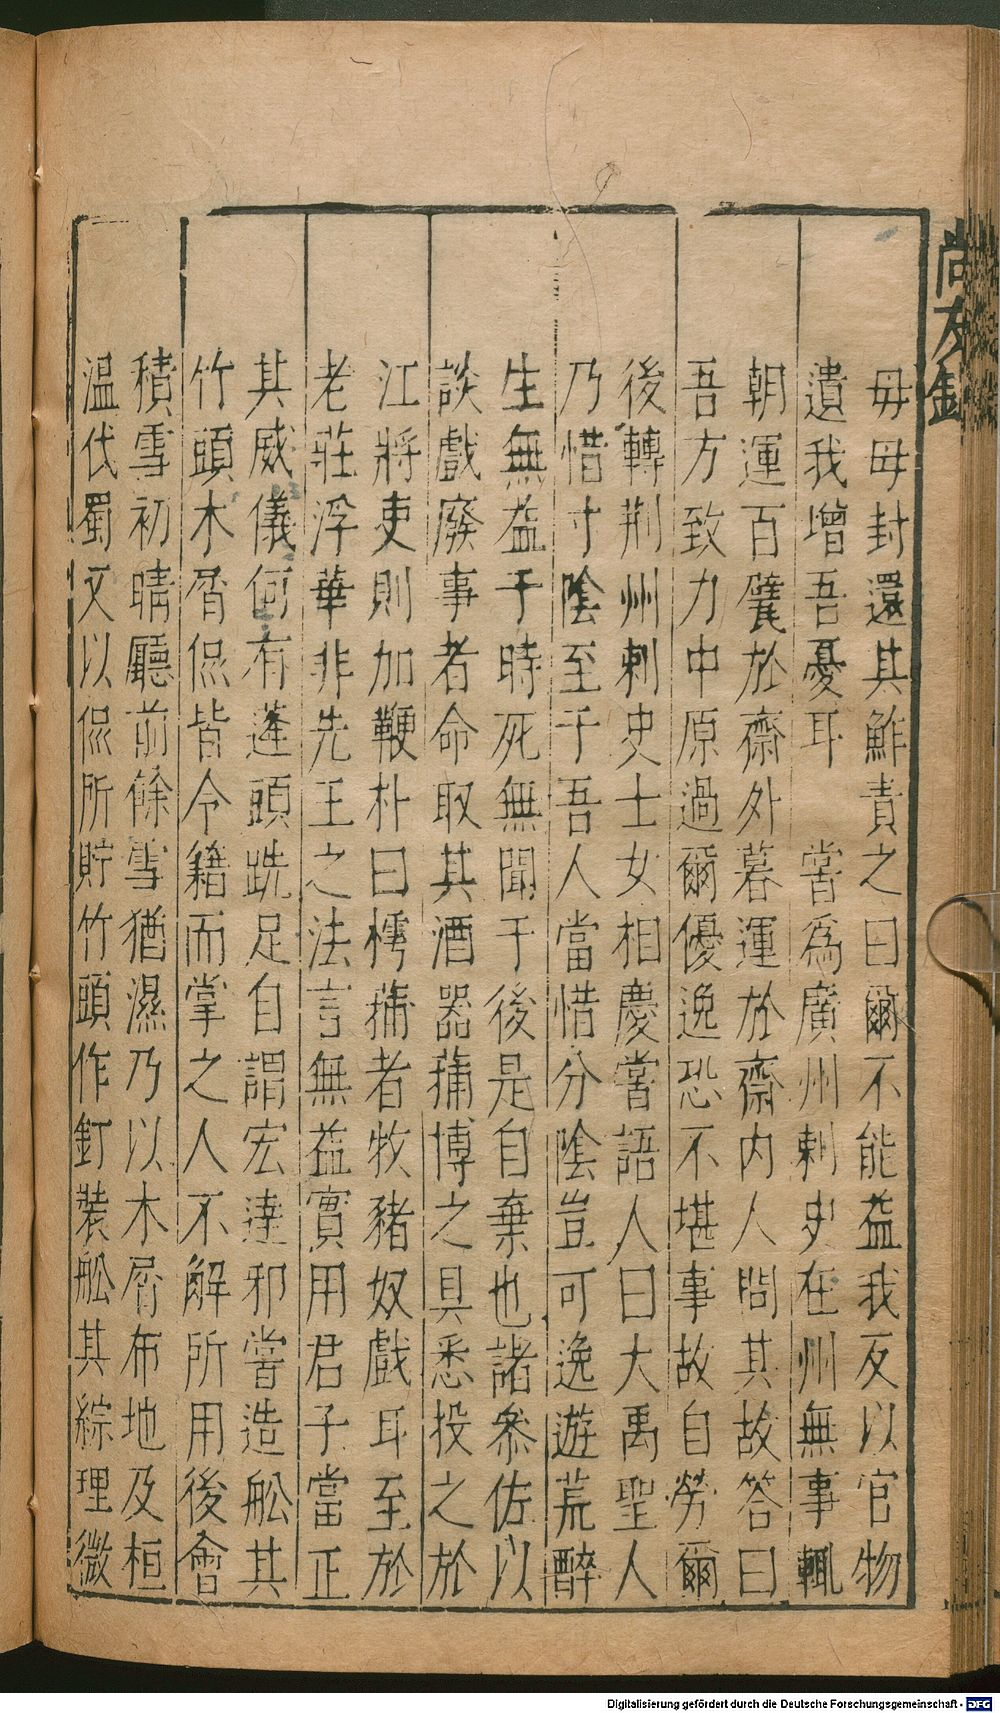 毋毋封還其鮓責之曰爾不能益我反以官物
遺我增吾憂耳　嘗為廣州刺史在州無事輒
朝運百甓於齋外暮運於齋內人問其故答曰
吾方致力中原過爾優逸恐不堪事故自勞爾
後轉荆州刺史士女相慶嘗語人曰大禹聖人
乃惜寸陰至于吾人當惜分陰豈可逸遊荒醉
生無益于時死無聞于後是自棄也諸參佐以
談戲廢事者命取其酒器蒱博之具悉投之於
江將吏則加鞭朴曰樗蒱者牧豬奴戲耳至於
老莊浮華非先王之法言無益實用君子當正
其威儀何有蓬頭跣足自謂宏達邪嘗造舩其
竹頭木屑侃皆令籍而掌之人不解所用後會
積雪初晴廳前餘雪猶濕乃以木屑布地及桓
温伐蜀又以侃所貯竹頭作釘裝舩其綜理微
尚友
Digitalisierung gefördert durch die Deutsche Forschungsgemeinschaft - DFG